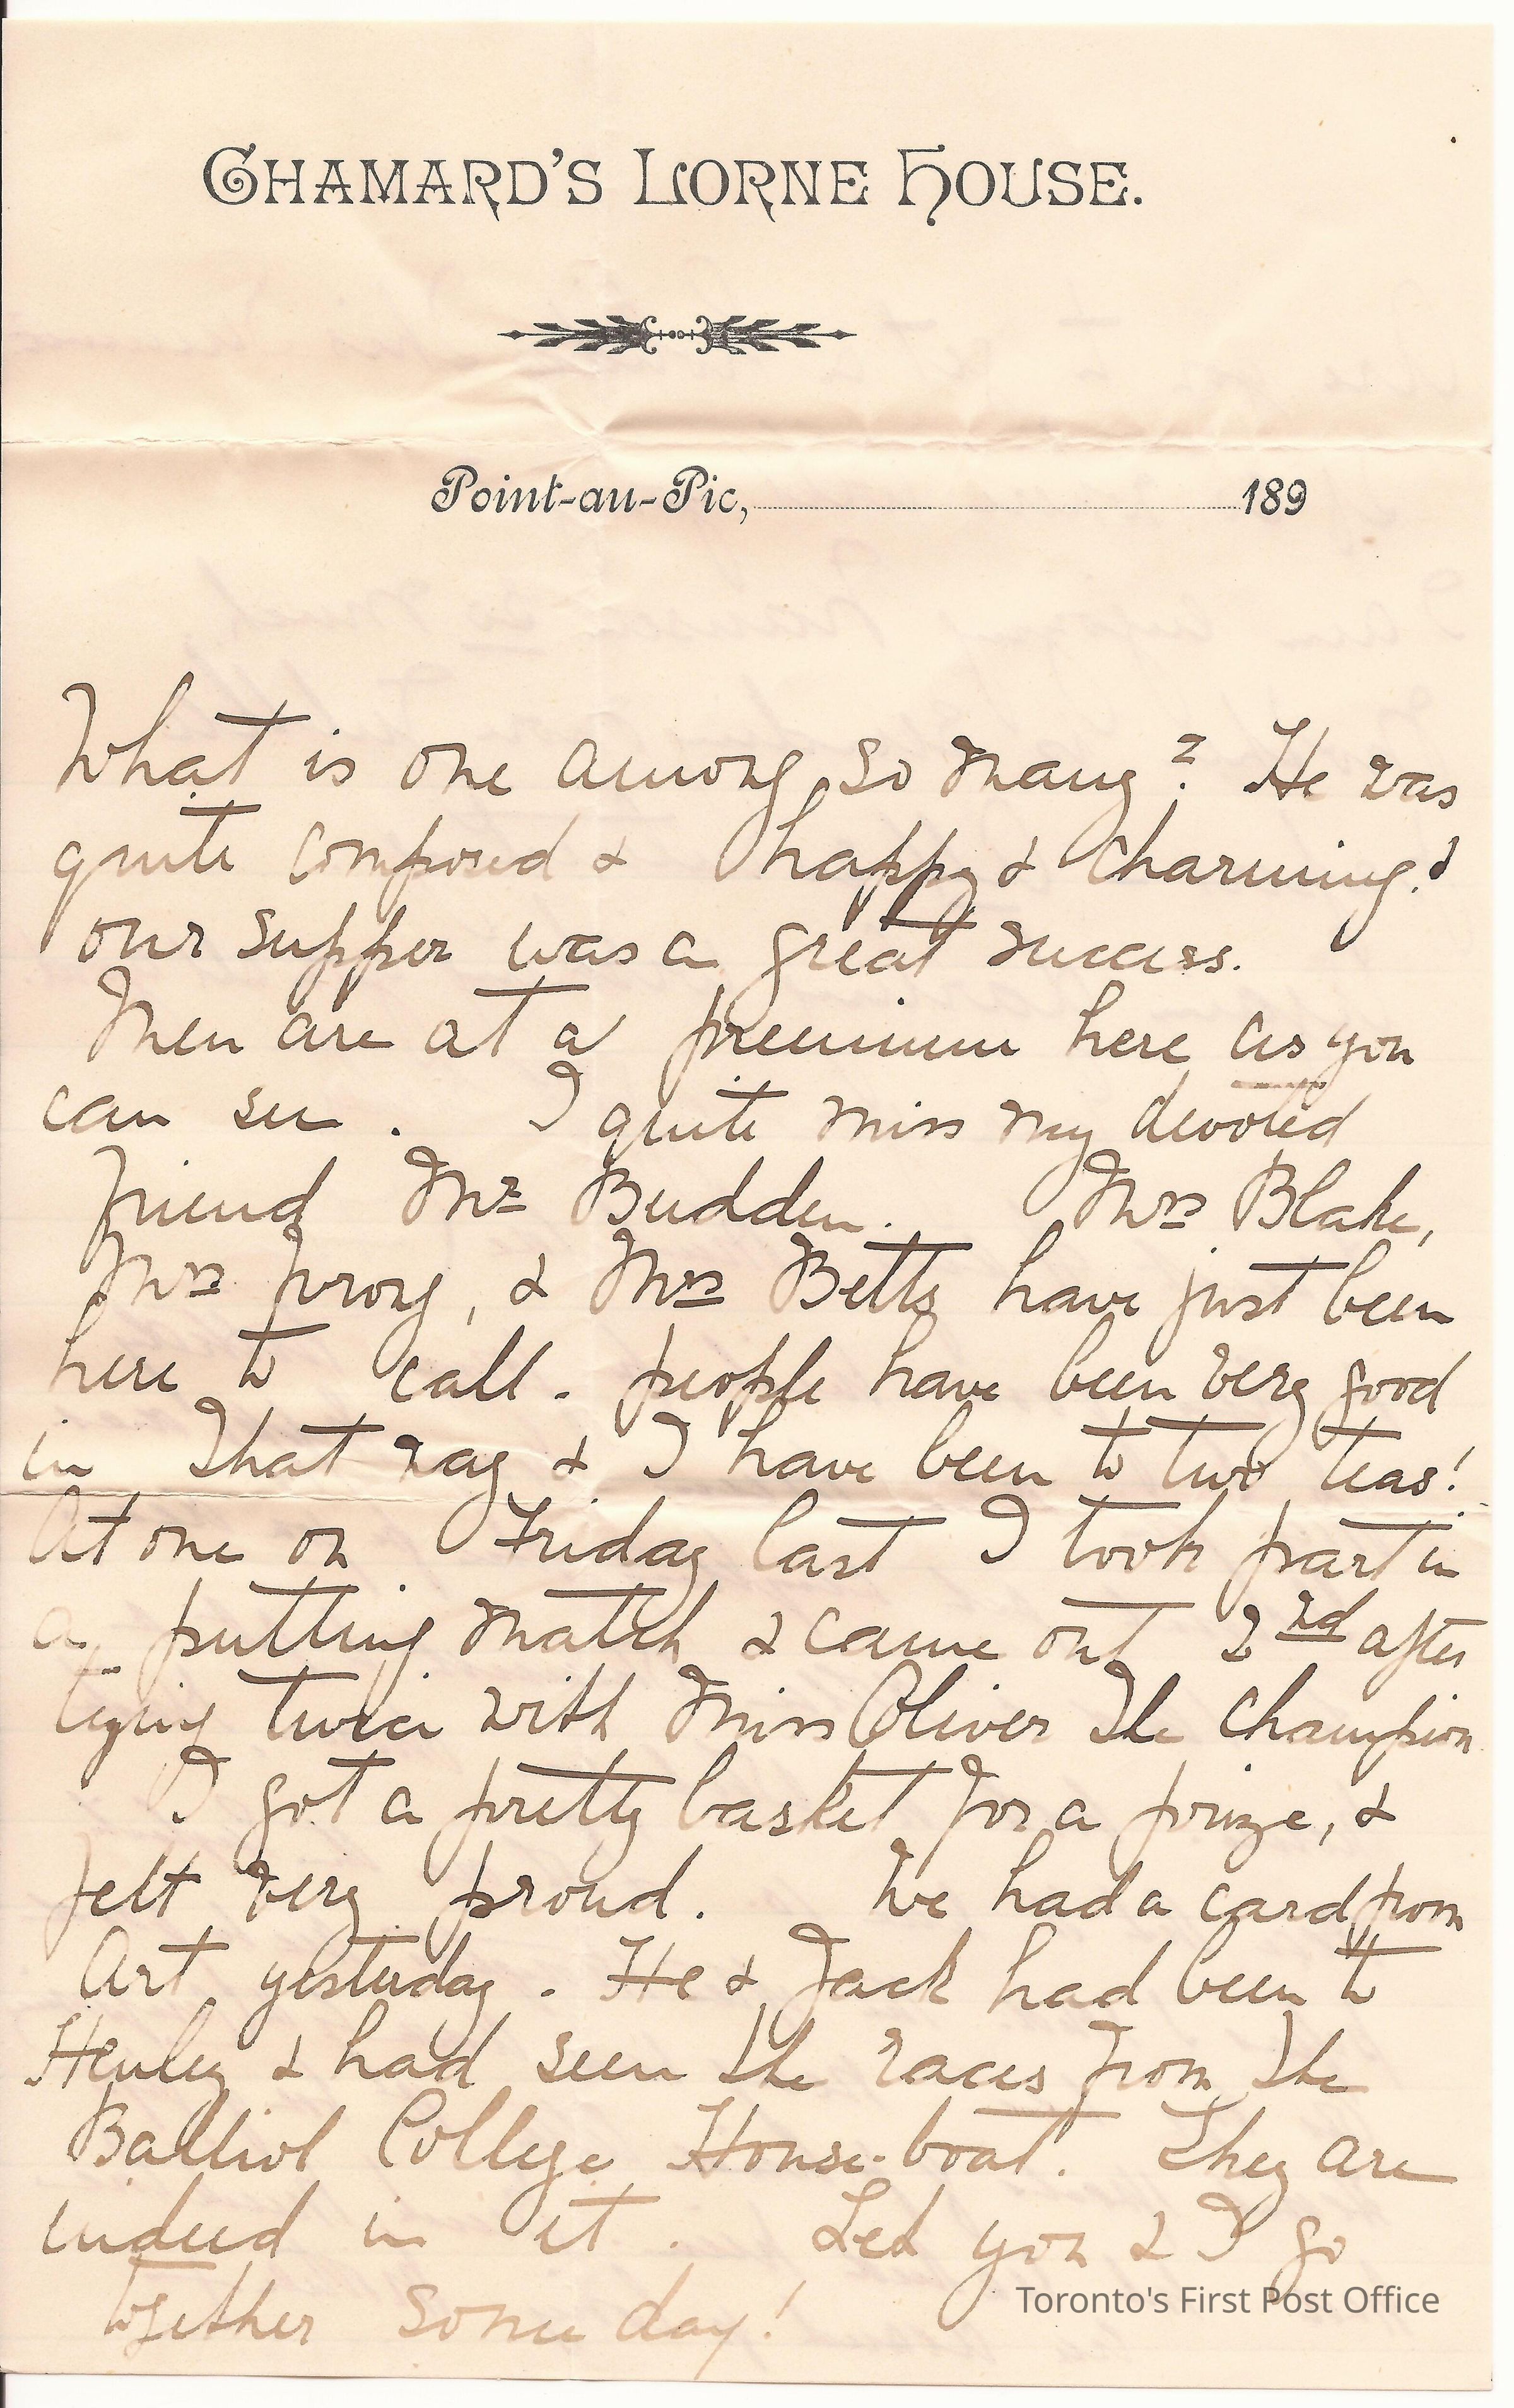 CHAMARD'S LORNE HOUSE.
Point-au-Pic, 189
What is one among so many? He was
quite composed & happy & charming! &
our supper was a great success.
Men are at a premium here as you
can see. I quite miss my devoted
friend Mr Budden. Mrs Blake,
Mrs & Mrs Betts have just been
here to call. people have been very good
in that way & I have been to two teas!
At one on Friday last I took part in
a putting match & came out 2nd after
tying twice with Miss Oliver the champion
I got a pretty basket for a prize, &
felt very proud. We had a card from
Art yesterday. He & Jack had been to
Henley & had seen the races from the
Balliol College House-boat. They are
indeed in it. Let you & I go
together some day!
Toronto's First Post Office